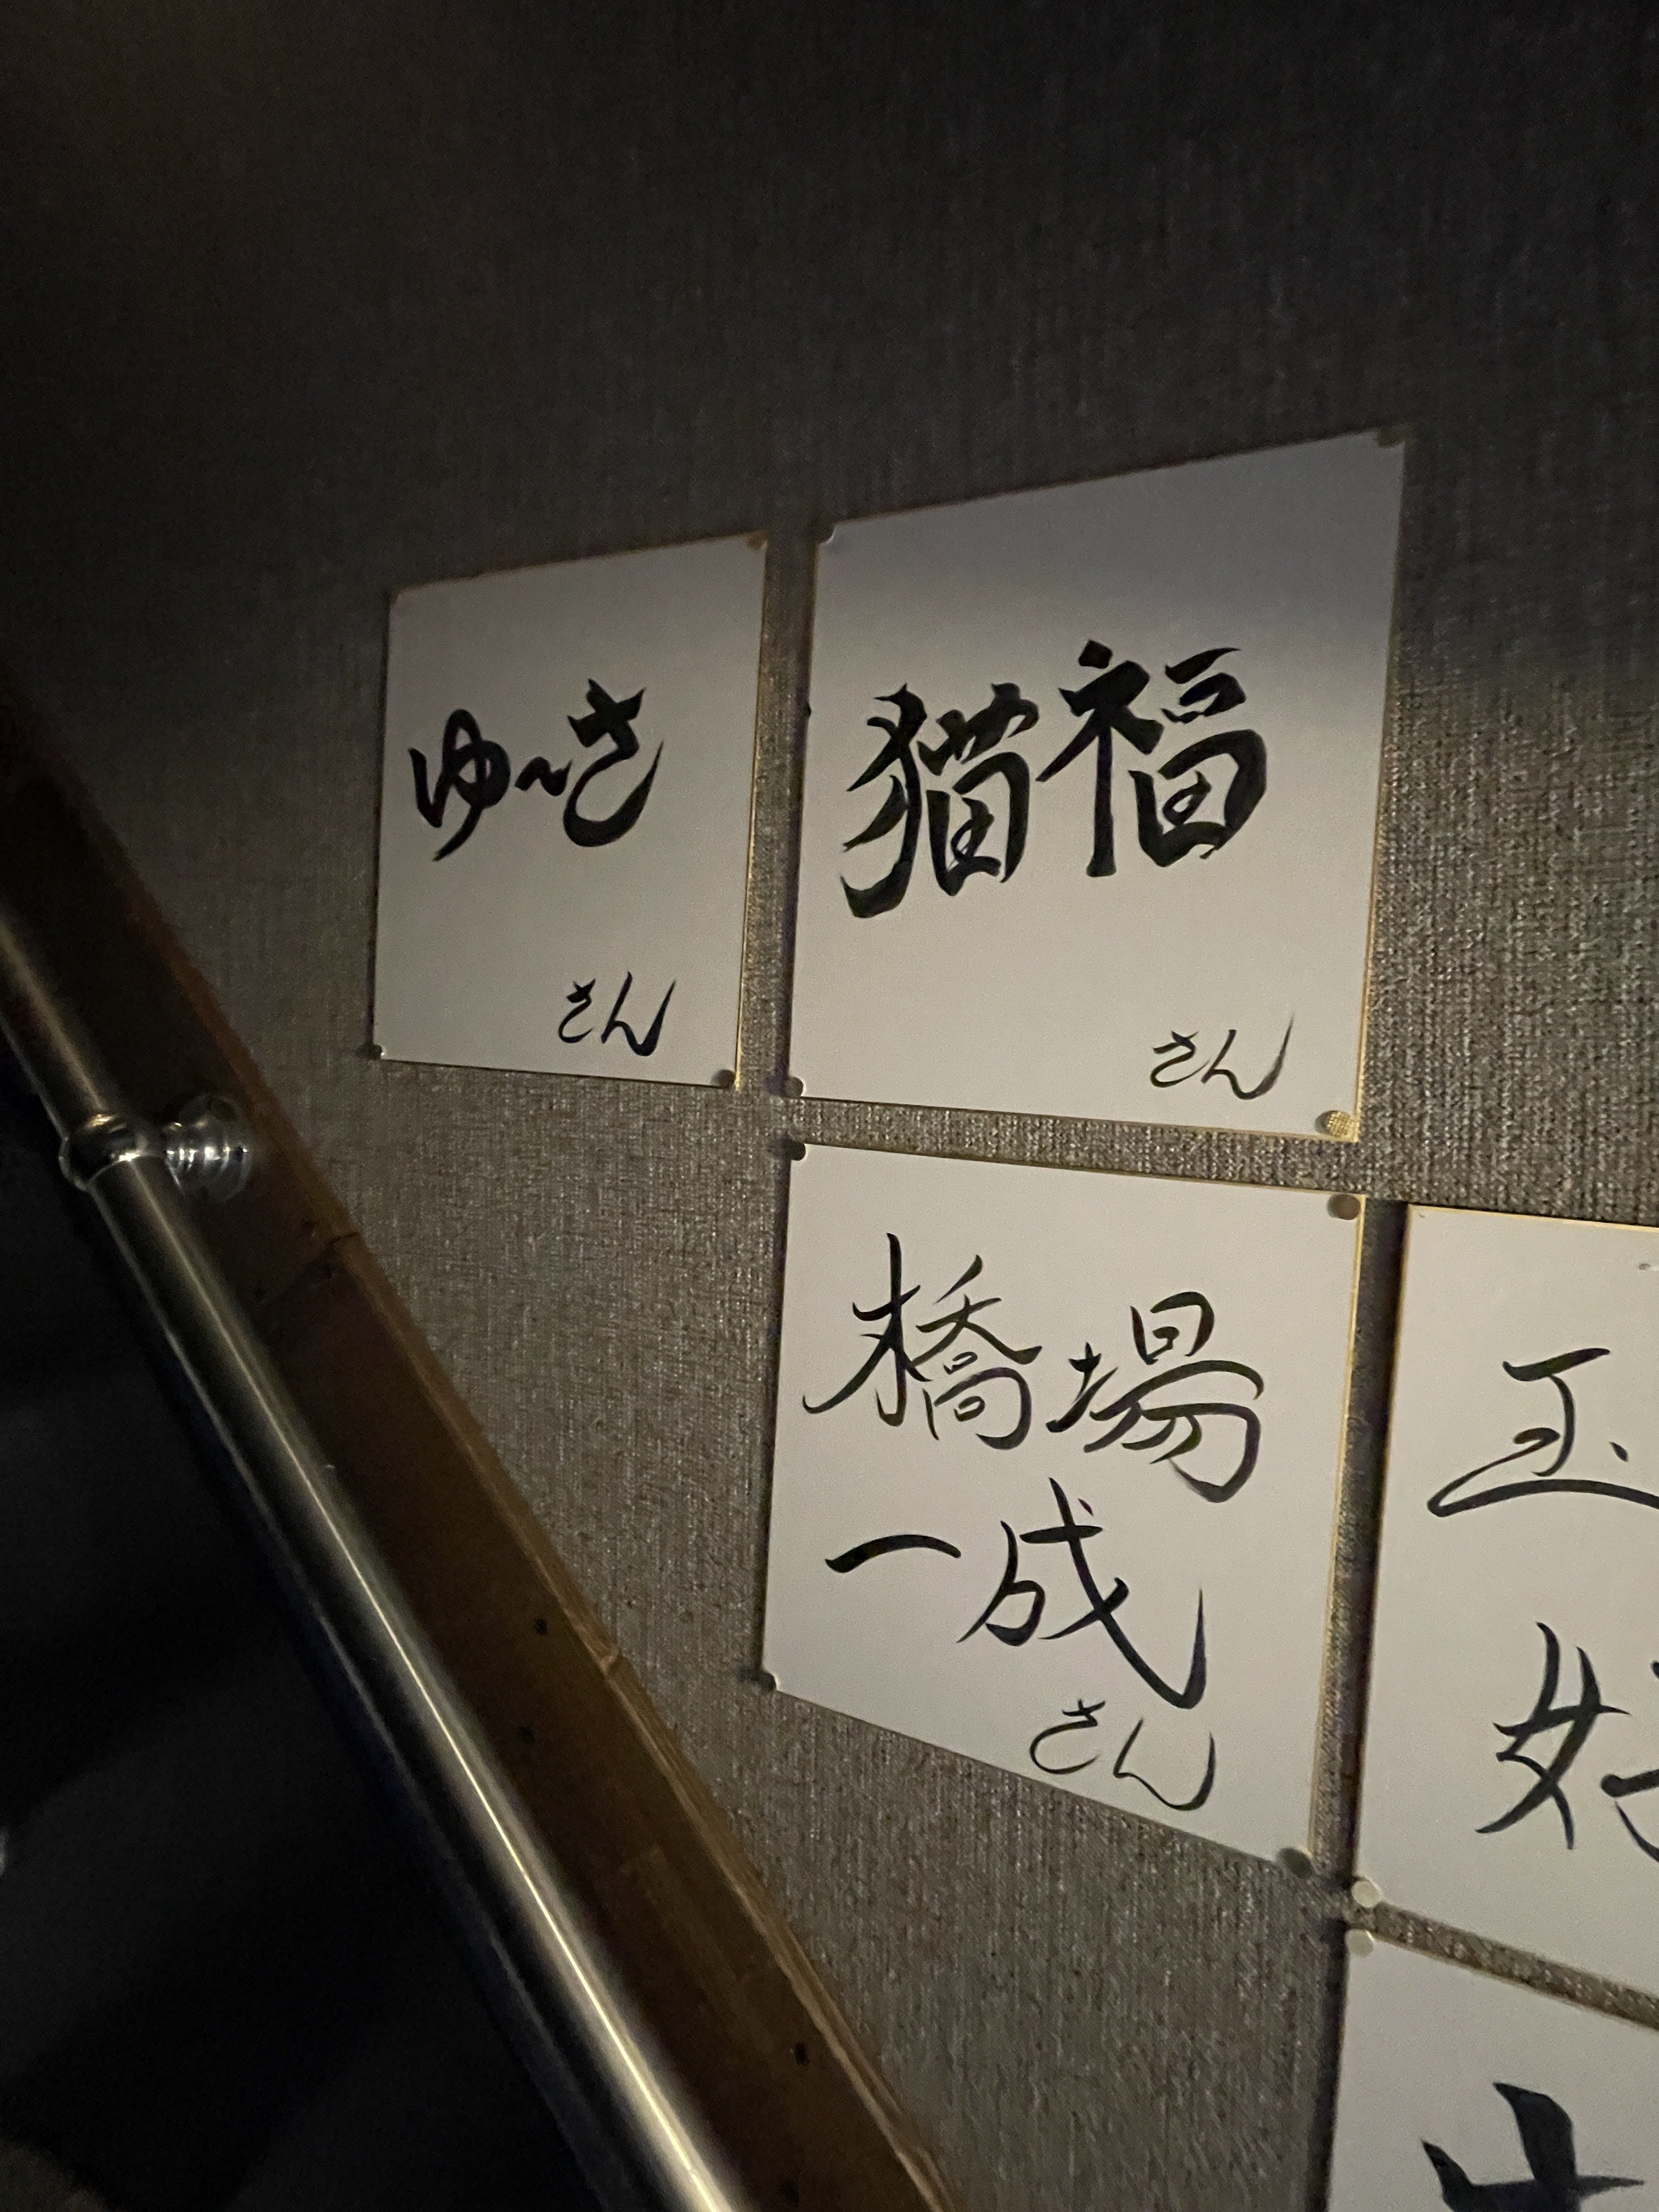 ゆ~さ
さん
猫福
さん
橋場
一成
さん
玉